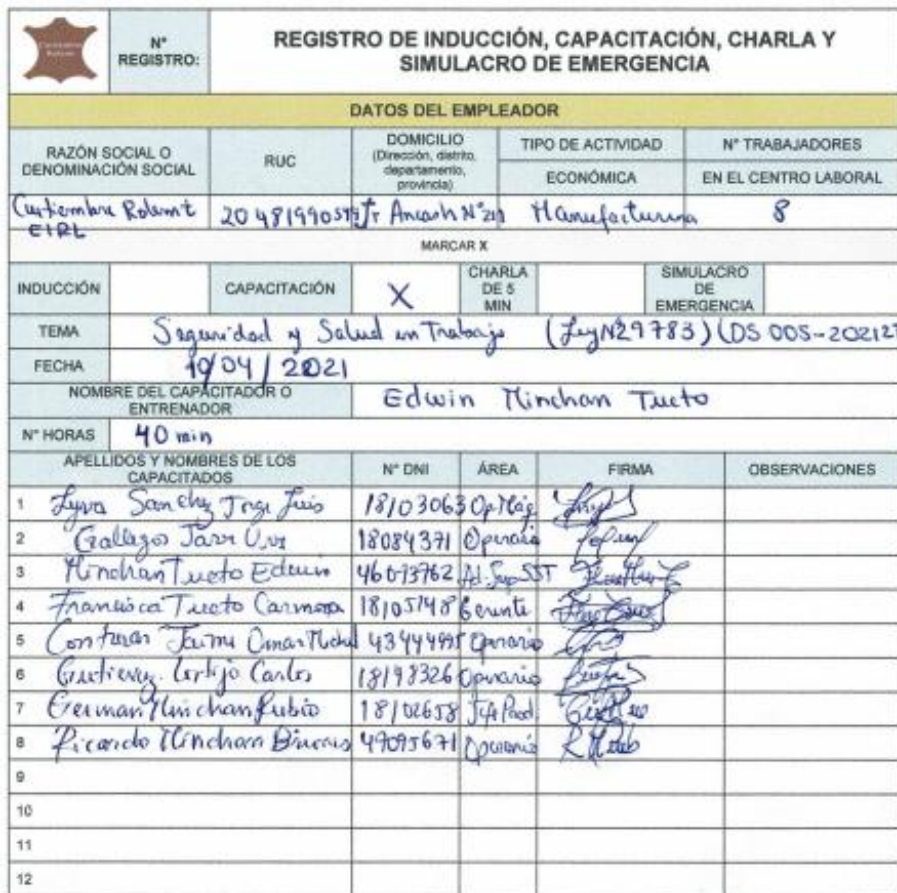 N° REGISTRO:
REGISTRO DE INDUCCIÓN, CAPACITACIÓN, CHARLA Y
SIMULACRO DE EMERGENCIA
DATOS DEL EMPLEADOR
RAZÓN SOCIAL O DENOMINACIÓN SOCIAL
RUC
DOMICILIO (Dirección, distrito, departamento, provincia)
TIPO DE ACTIVIDAD ECONÓMICA
N° TRABAJADORES EN EL CENTRO LABORAL
EIRL
Jr Ancash Manufacturera 8
MARCAR X
INDUCCIÓN CAPACITACIÓN X CHARLA DE 5 MIN SIMULACRO DE EMERGENCIA
TEMA Seguridad y Salud en Trabajo (Ley N29783) (DS 005-2021
FECHA 19/04/2021
NOMBRE DEL CAPACITADOR O ENTRENADOR Edwin Minchan Tucto
N° HORAS 40 min
APELLIDOS Y NOMBRES DE LOS CAPACITADOS N° DNI ÁREA FIRMA OBSERVACIONES
1 Sanchez Jorge Luis 18103063
2 Gallegos 18084371 Operario
3 Minchan Tucto Edwin
4 Francisca Tucto Carmona 18105148 Gerente
5 Operario
6 Carlos 18198326 Operario
7 German Minchan Rubio 18102658 Jefe Prod.
8 Ricardo Minchan 49095671 Operario
9
10
11
12